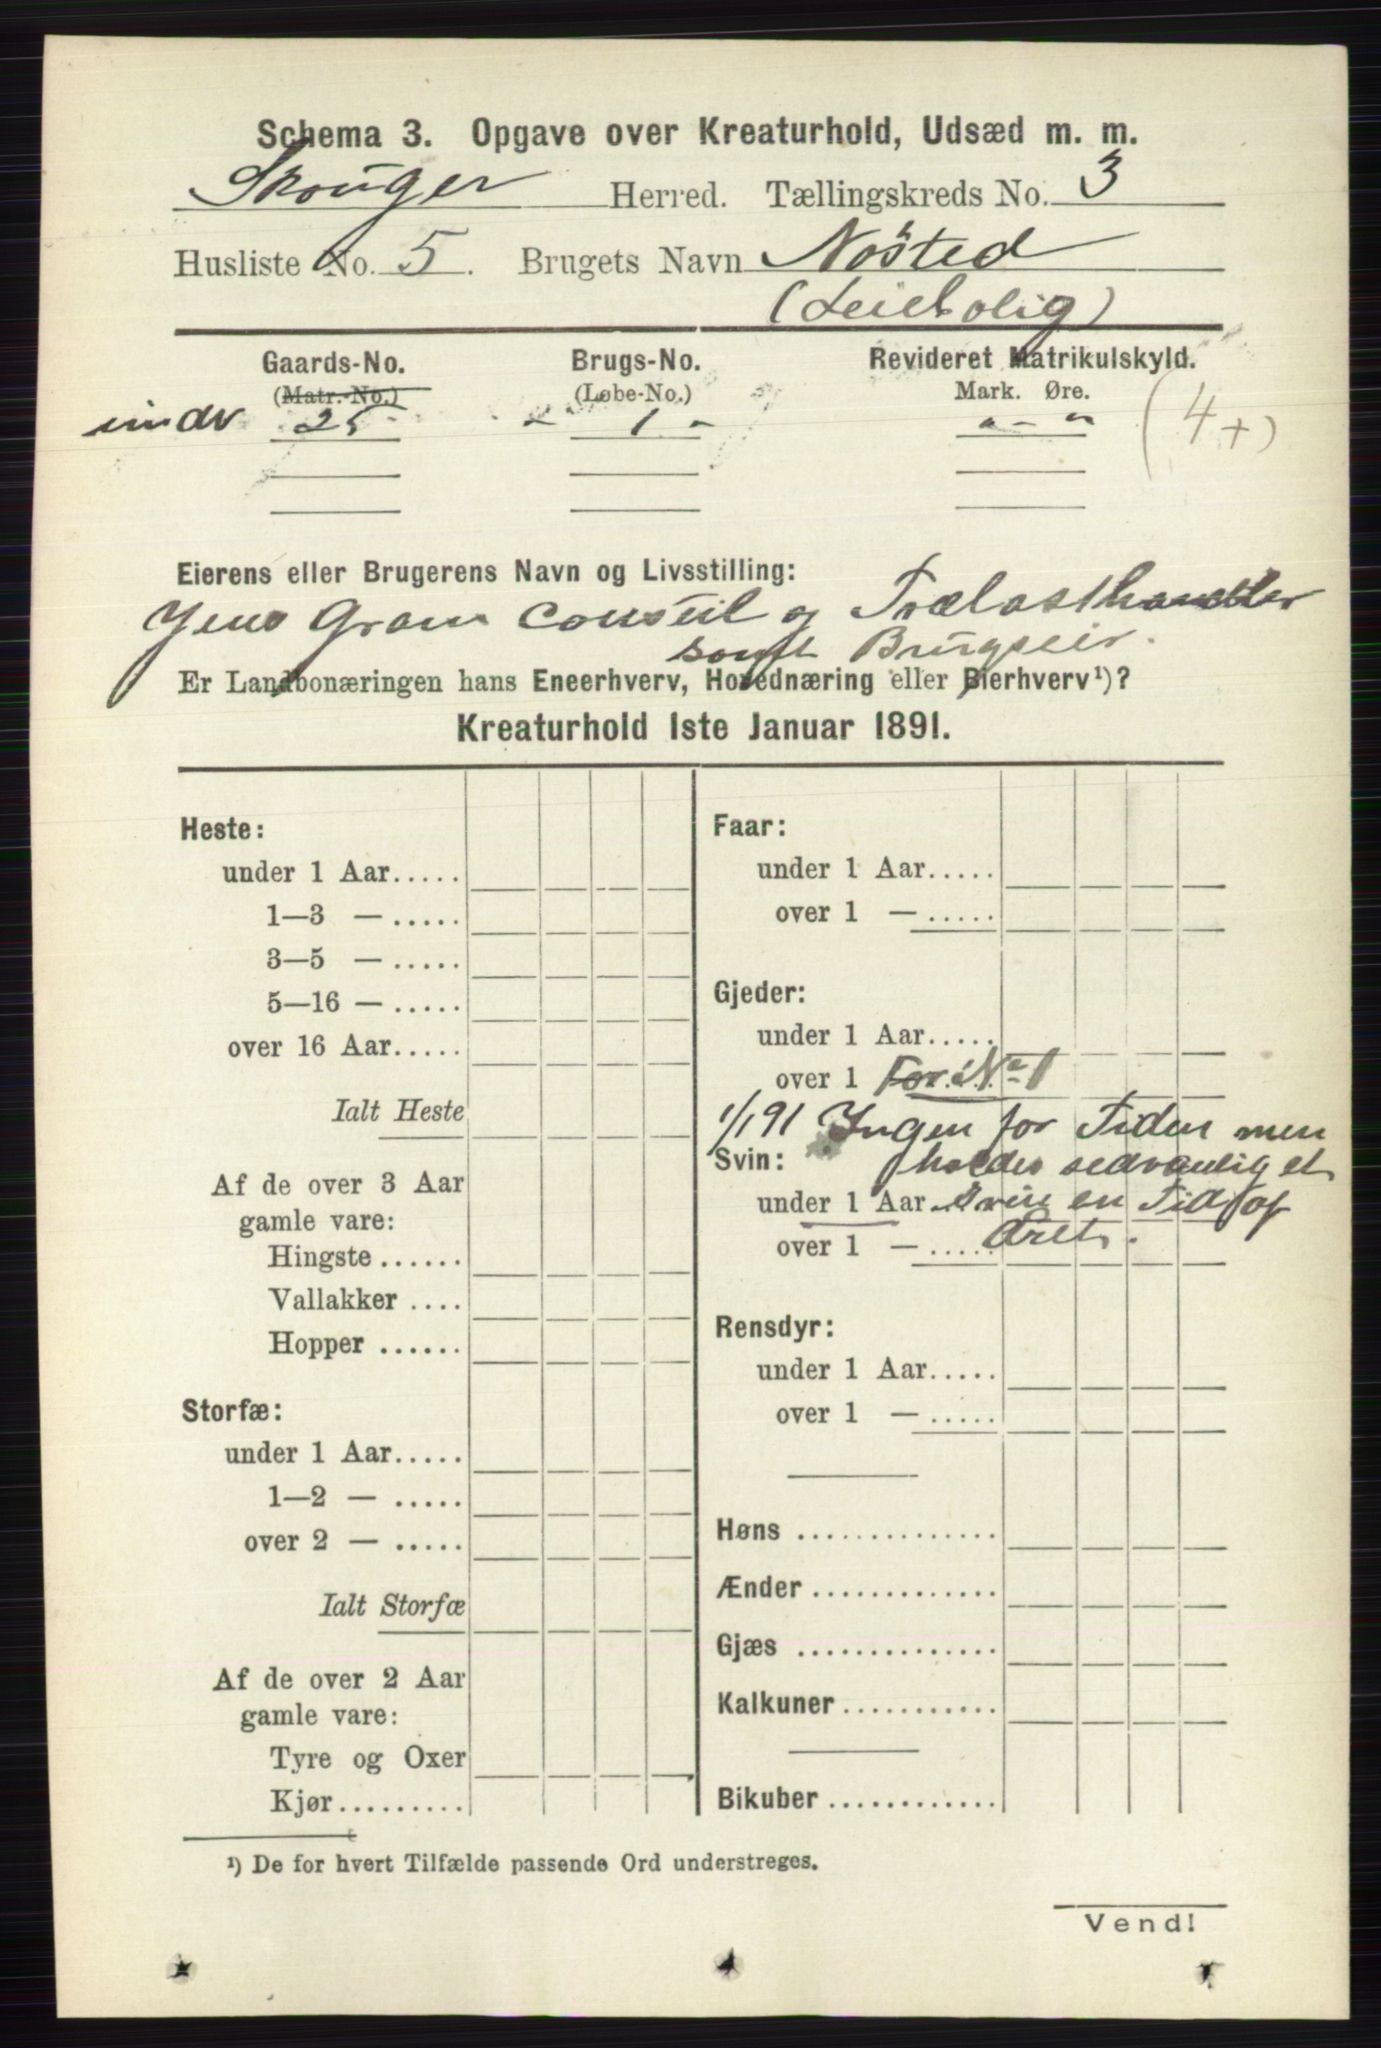 Schema 3. Opgave over Kreaturhold, Udsæd m. m.
Skouger Herred. Tællingskreds No. 3
Husliste No. 5. Brugets Navn Nøsted
(Leiebolig)
Gaards-No. Brugs-No. Revideret Matrikulskyld.
(Matr.-No.) (Løbe-No.) Mark. Øre.
under 25 - 1 - - - - (4+)
Eierens eller Brugerens Navn og Livsstilling:
Jens Gram Consul og Trælasthandler
samt Brugseier.
Er Landbonæringen hans Eneerhverv, Hovednæring eller Bierhverv¹)?
Kreaturhold 1ste Januar 1891.
Heste:
under 1 Aar.....
1—3 — .....
3—5 — .....
5—16 — .....
over 16 Aar.....
Ialt Heste
Af de over 3 Aar
gamle vare:
Hingste ......
Vallakker ....
Hopper ......
Storfæ:
under 1 Aar.....
1—2 — .....
over 2 — .....
Ialt Storfæ
Af de over 2 Aar
gamle vare:
Tyre og Oxer
Kjør.........
Faar:
under 1 Aar.....
over 1 — .....
Gjeder:
under 1 Aar.....
over 1 For No 1
1/1 91 Ingen for Tiden men
Svin: holdes sedvanlig et
under 1 Aar Svin en Tid af
over 1 — ..... Aret.
Rensdyr:
under 1 Aar.....
over 1 — .....
Høns ..............
Ænder .............
Gjæs ..............
Kalkuner ...........
Bikuber ............
¹) De for hvert Tilfælde passende Ord understreges.
Vend!